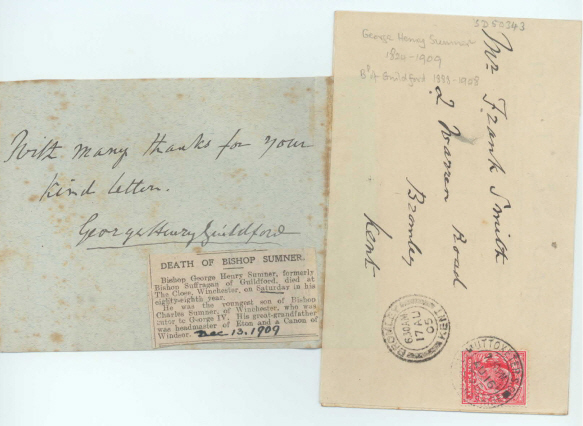 With many thanks for your
kind letter.
George Henry Guildford
DEATH OF BISHOP SUMNER.
Bishop George Henry Sumner, formerly
Bishop Suffragan of Guildford, died at
The Close, Winchester, on Saturday in his
eighty-eighth year.
He was the youngest son of Bishop
Charles Sumner, of Winchester, who was
tutor to George IV. His great-grandfather
was headmaster of Eton and a Canon of
Windsor.
Dec 13. 1909
SD50343
George Henry Sumner
1824-1909
Bp of Guildford 1888-1908
Mr Frank Smith
2 Warren Road
Bromley
Kent
BROMLEY
6.30AM
17 AU
05
KENT